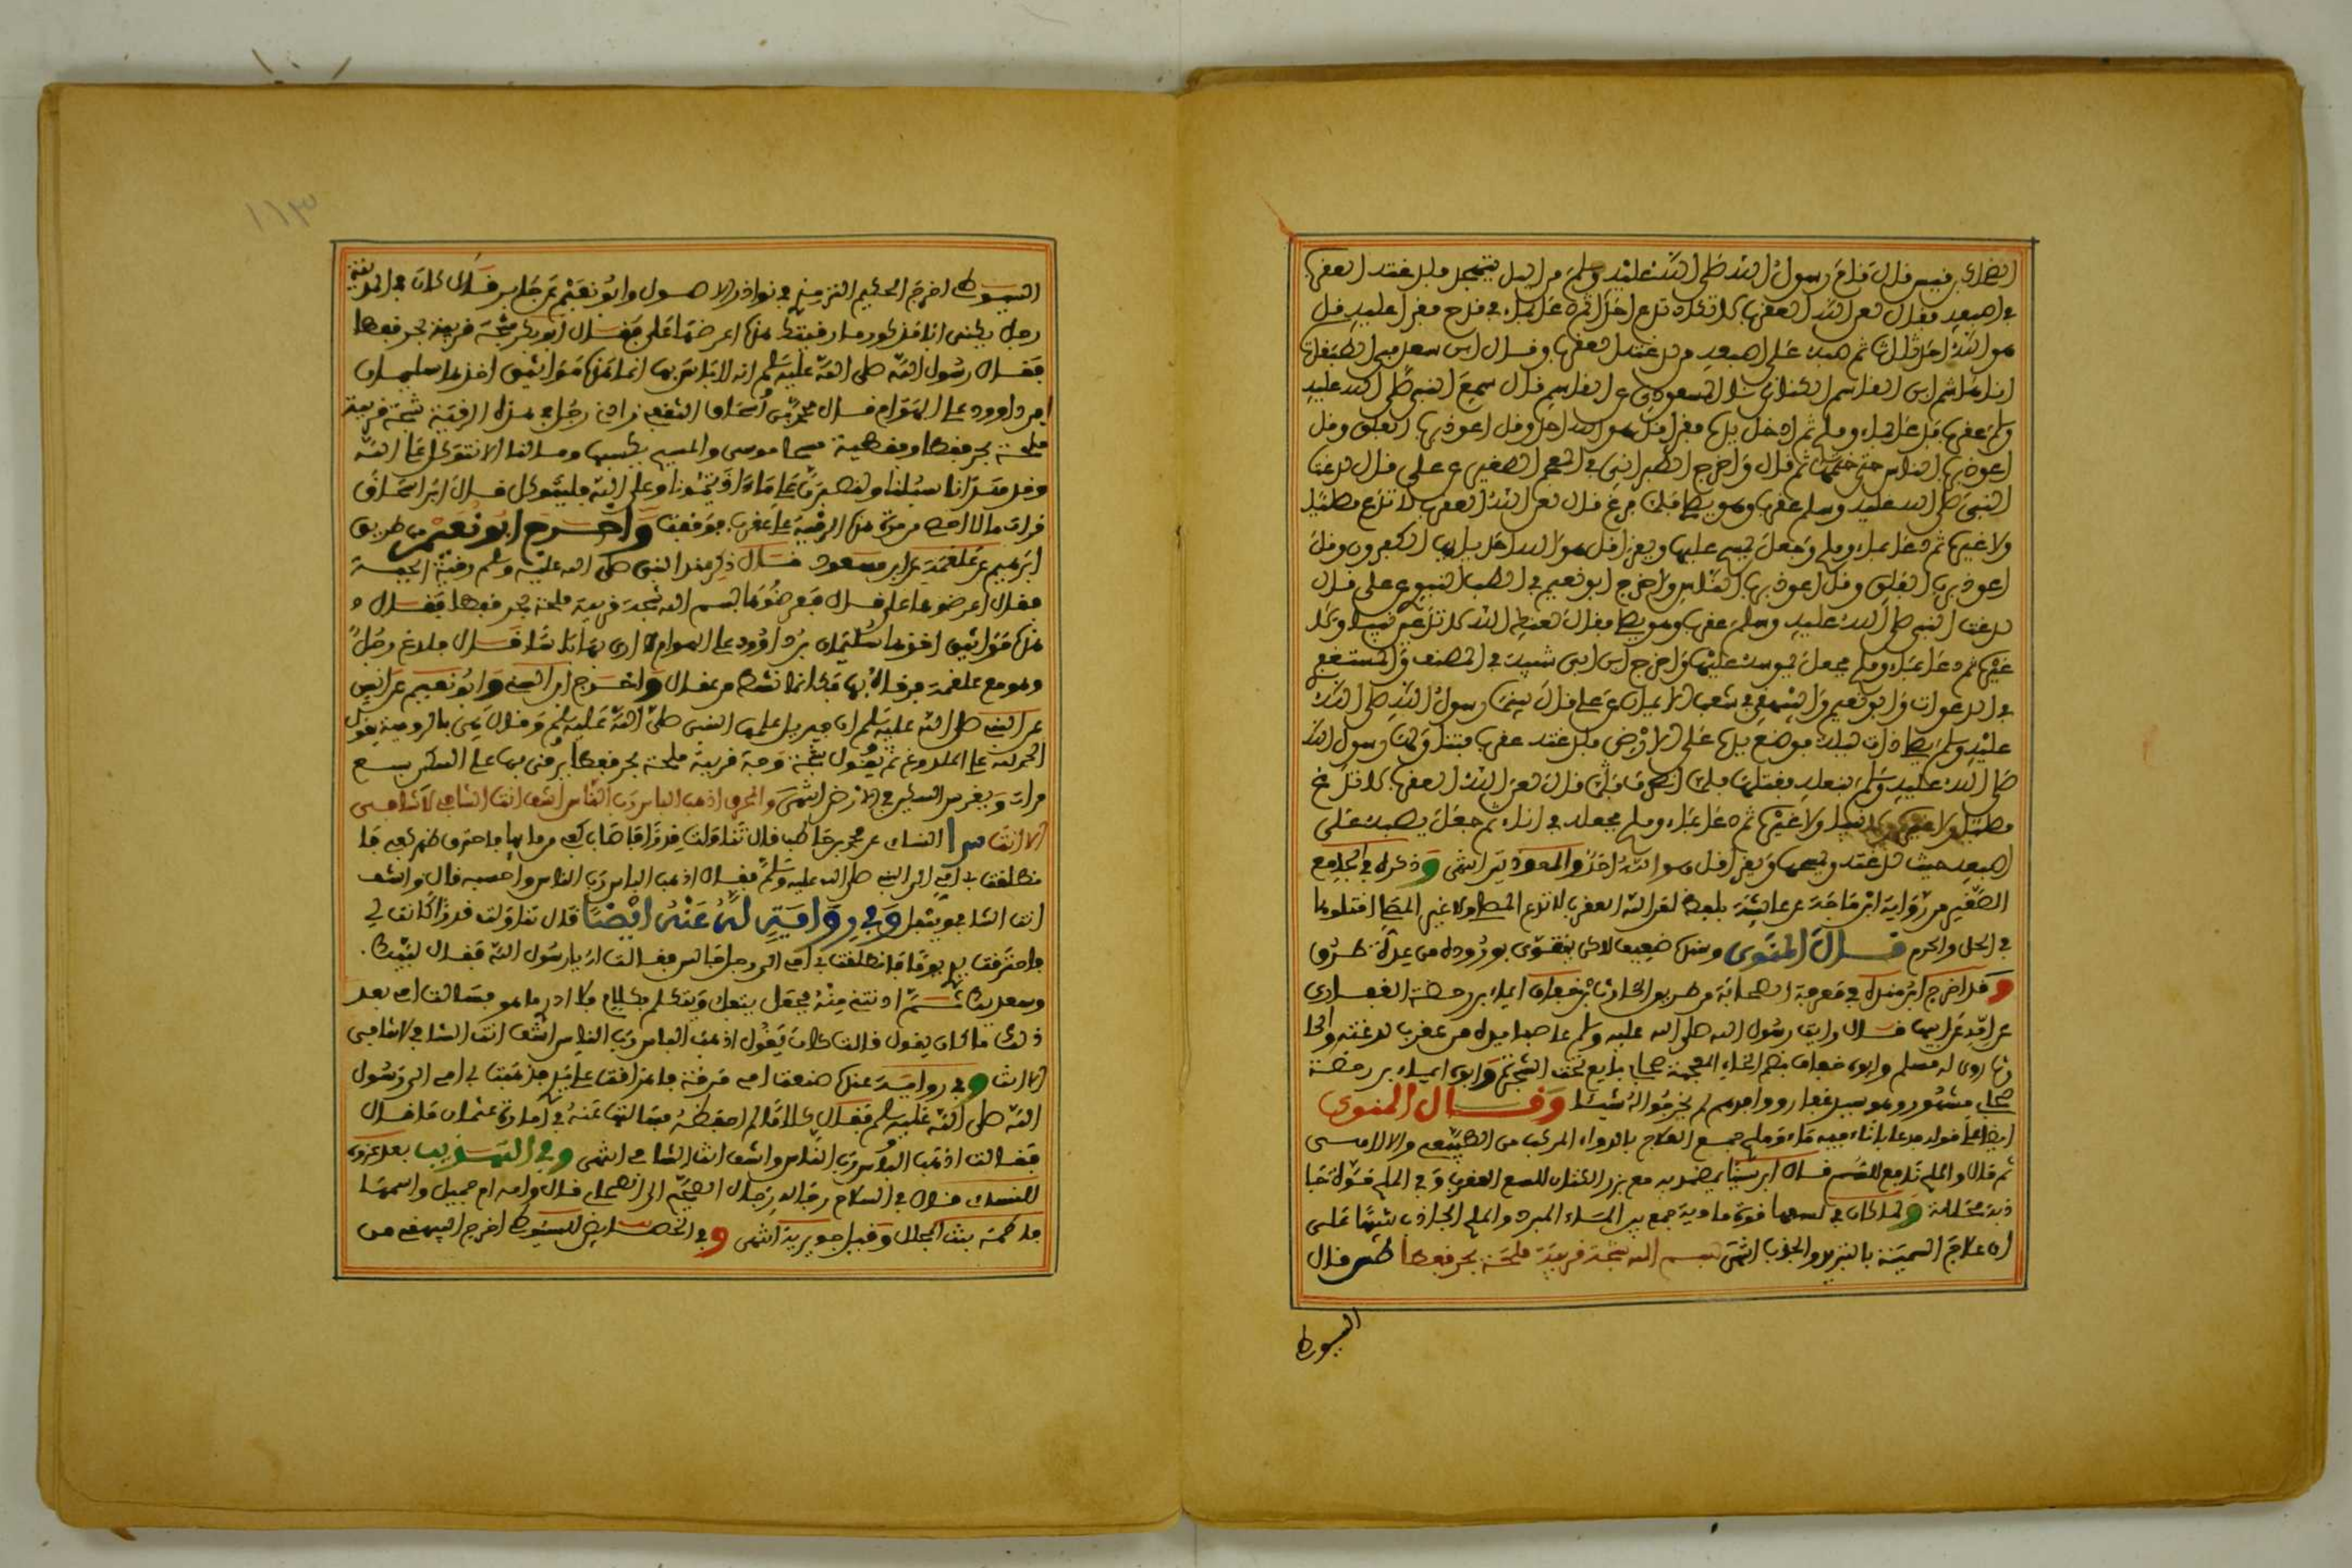 فيس قال قام رسول الله صلى الله عليه وسلم من الليل يتهجد فلدغته العقرب
في اصبعه فقال لعن الله العقرب ما تكاد تدع احدا ثم دعا بماء في قدح فقرأ عليه قل
هو الله احد ثلاثا ثم صبه على اصبعه
انا هاشم ابن القاسم الكناني نا المسعودي عن القاسم قال سمع النبي صلى الله عليه
وسلم عقرب فدعا بماء وملح ثم ادخل يده فقرأ قل هو الله احد وقل اعوذ برب الفلق وقل
اعوذ برب الناس حتى ختمها ثم قال وأخرج الطبراني في المعجم الصغير عن علي قال لدغت
النبي صلى الله عليه وسلم عقرب وهو يصلي فلما فرغ قال لعن الله العقرب لا تدع مصليا
ولا غيره ثم دعا بماء وملح وجعل يمسح عليها ويقرأ قل هو الله احد قل يأيها الكفرون وقل
اعوذ برب الفلق وقل اعوذ برب الناس وأخرج ابو نعيم في الطب النبوي عن علي قال
لدغت النبي صلى الله عليه وسلم عقرب وهو يصلي فقال لعنها الله لا تدع نبيا ولا
غيره ثم دعا بماء وملح فجعل يمسه عليها وأخرج ابن ابي شيبة في المصنف والمستغفري
في الدعوات وابو نعيم والبيهقي في شعب الايمان عن علي قال بينما رسول الله صلى الله
عليه وسلم يصلي ذات ليلة فوضع يده على الارض فلدغته عقرب فتناولها رسول الله
صلى الله عليه وسلم بنعله فقتلها فلما انصرف قال لعن الله العقرب لا تدع
مصليا ولا غيره ثم دعا بماء وملح فجعله في اناء ثم جعل يصبه على
اصبعه حيث لدغته ويمسحها ويقرأ قل هو الله احد والمعوذتين انتهى وذكره في الجامع
الصغير من رواية ابن ماجة عن عائشة بلفظ لعن الله العقرب لا تدع المصلي ولا غير المصلي اقتلوها
في الحل والحرم قال المنوي وسنده ضعيف لاكن يتقوى بوروده من عدة طرق
وقد أخرج ابن منده في معرفة الصحابة من طريق الحارث بن خفاف ايماء بن رحضة الغفاري
عن امه عن ابيها قال رايت رسول الله صلى الله عليه وسلم عاصبا يده من عقرب لدغته والحا
رث روى له مسلم وابوه خفاف بضم الخاء المعجمة صحابي بايع تحت الشجرة وابوه ايماء بن رحضة
صحابي مشهور وهو سيد غفار ووافدهم لم يخرجوا له شيئا وقال المنوي
ايضا على قوله فدعا باناء فيه ماء وملح جمع العلاج بالدواء المركب من الطبيعي والالاهي
ثم قال والملح نافع للسم قال ابن سينا يضمد به مع بزر الكتان للسع العقرب وفي الملح قوة جا
ذبة محللة ولما كان في لسعها قوة نارية جمع بين الماء المبرد والملح الجاذب تنبيها على
ان علاج السمية بالتبريد والجذب انتهى بسم الله شجة قرنية ملحة بحر قفطا طس قال
السيوطي
١١٣
السيوطي اخرج الحكيم الترمذي في نوادر الاصول وابو نعيم عن جابر قال كان في المدينة
رجل يكنى ابا مذكور رقيته اعرضها علي فقال ابو بكر شجة قرنية بحر قفطا
فقال رسول الله صلى الله عليه وسلم انه لا باس بها انما هذه مواثيق اخذها سليمان
ابن داوود على الهوام قال محمد بن اسحاق الثقفي زادني رجل في هذه الرقية شجة قرنية
ملحة بحر قفطا وقطيفة موسى والمسيح وما لنا الا نتوكل على الله
وقد هدانا سبلنا ولنصبرن على ما اذيتمونا وعلى الله فليتوكل قال ابن اسحاق
فرأيت ما لا احصي من هذه الرقية على عقرب فوقفت وأخرج ابو نعيم من طريق
ابرهيم عن علقمة عن ابن مسعود قال ذكر عند النبي صلى الله عليه وسلم رقية الحية
فقال اعرضوها علي قال فعرضوها بسم الله شجة قرنية ملحة بحر قفطا فقال
هذه مواثيق اخذها سليمان بن داوود على الهوام لا ارى بها باسا قال فلدغ رجل
وهو مع علقمة فرقاه بها فكانما نشط من عقال وأخرج ابن السني وابو نعيم عن انس
عن النبي صلى الله عليه وسلم ان جبريل علمها النبي صلى الله عليه وسلم وقال هي بالرومية يقول
الحمد لله على الملدوغ ثم يقول شجة قرنية ملحة بحر قفطا يرقى بها على السكين سبع
مرات ويغرس السكين في الارض انتهى والحرق اذهب الباس رب الناس اشف انت الشافي لا شافي
الا انت س النسائي عن محمد بن حاطب قال تناولت قدرا فاصاب كفي من مائها فاحترق ظهر كفي فا
نطلقت بي امي الى النبي صلى الله عليه وسلم فقال اذهب الباس رب الناس واحسبه قال واشف
انت الشافي ويتفل وفي رواية له عنه ايضا قال تناولت قدرا كانت لي
فاحترقت يدي فانطلقت بي امي الى رجل جالس فقالت له يا رسول الله فقال لبيك
وسعديك ثم ادنتني منه فجعل يتفل ويتكلم بكلام لا ادري ما هو فسالت امي بعد
ذلك ما كان يقول قالت كان يقول اذهب الباس رب الناس اشف انت الشافي لا شافي
الا انت وفي رواية عنه صنعت امي مرقة فاهراقت على يدي فذهبت بي امي الى رسول
الله صلى الله عليه وسلم فقال كلاما لم احفظه فسالتها عنه في امارة عثمان ما قال
فقالت اذهب الباس رب الناس واشف انت الشافي انتهى وفي التهذيب بعد عزوه
للنسائي قال في السلاح رجاله رجال الصحيح الى الصحابي قال وامه ام جميل واسمها
فاطمة بنت المجلل وقيل جويرية انتهى وفي الخصائص للسيوطي اخرج البيهقي من